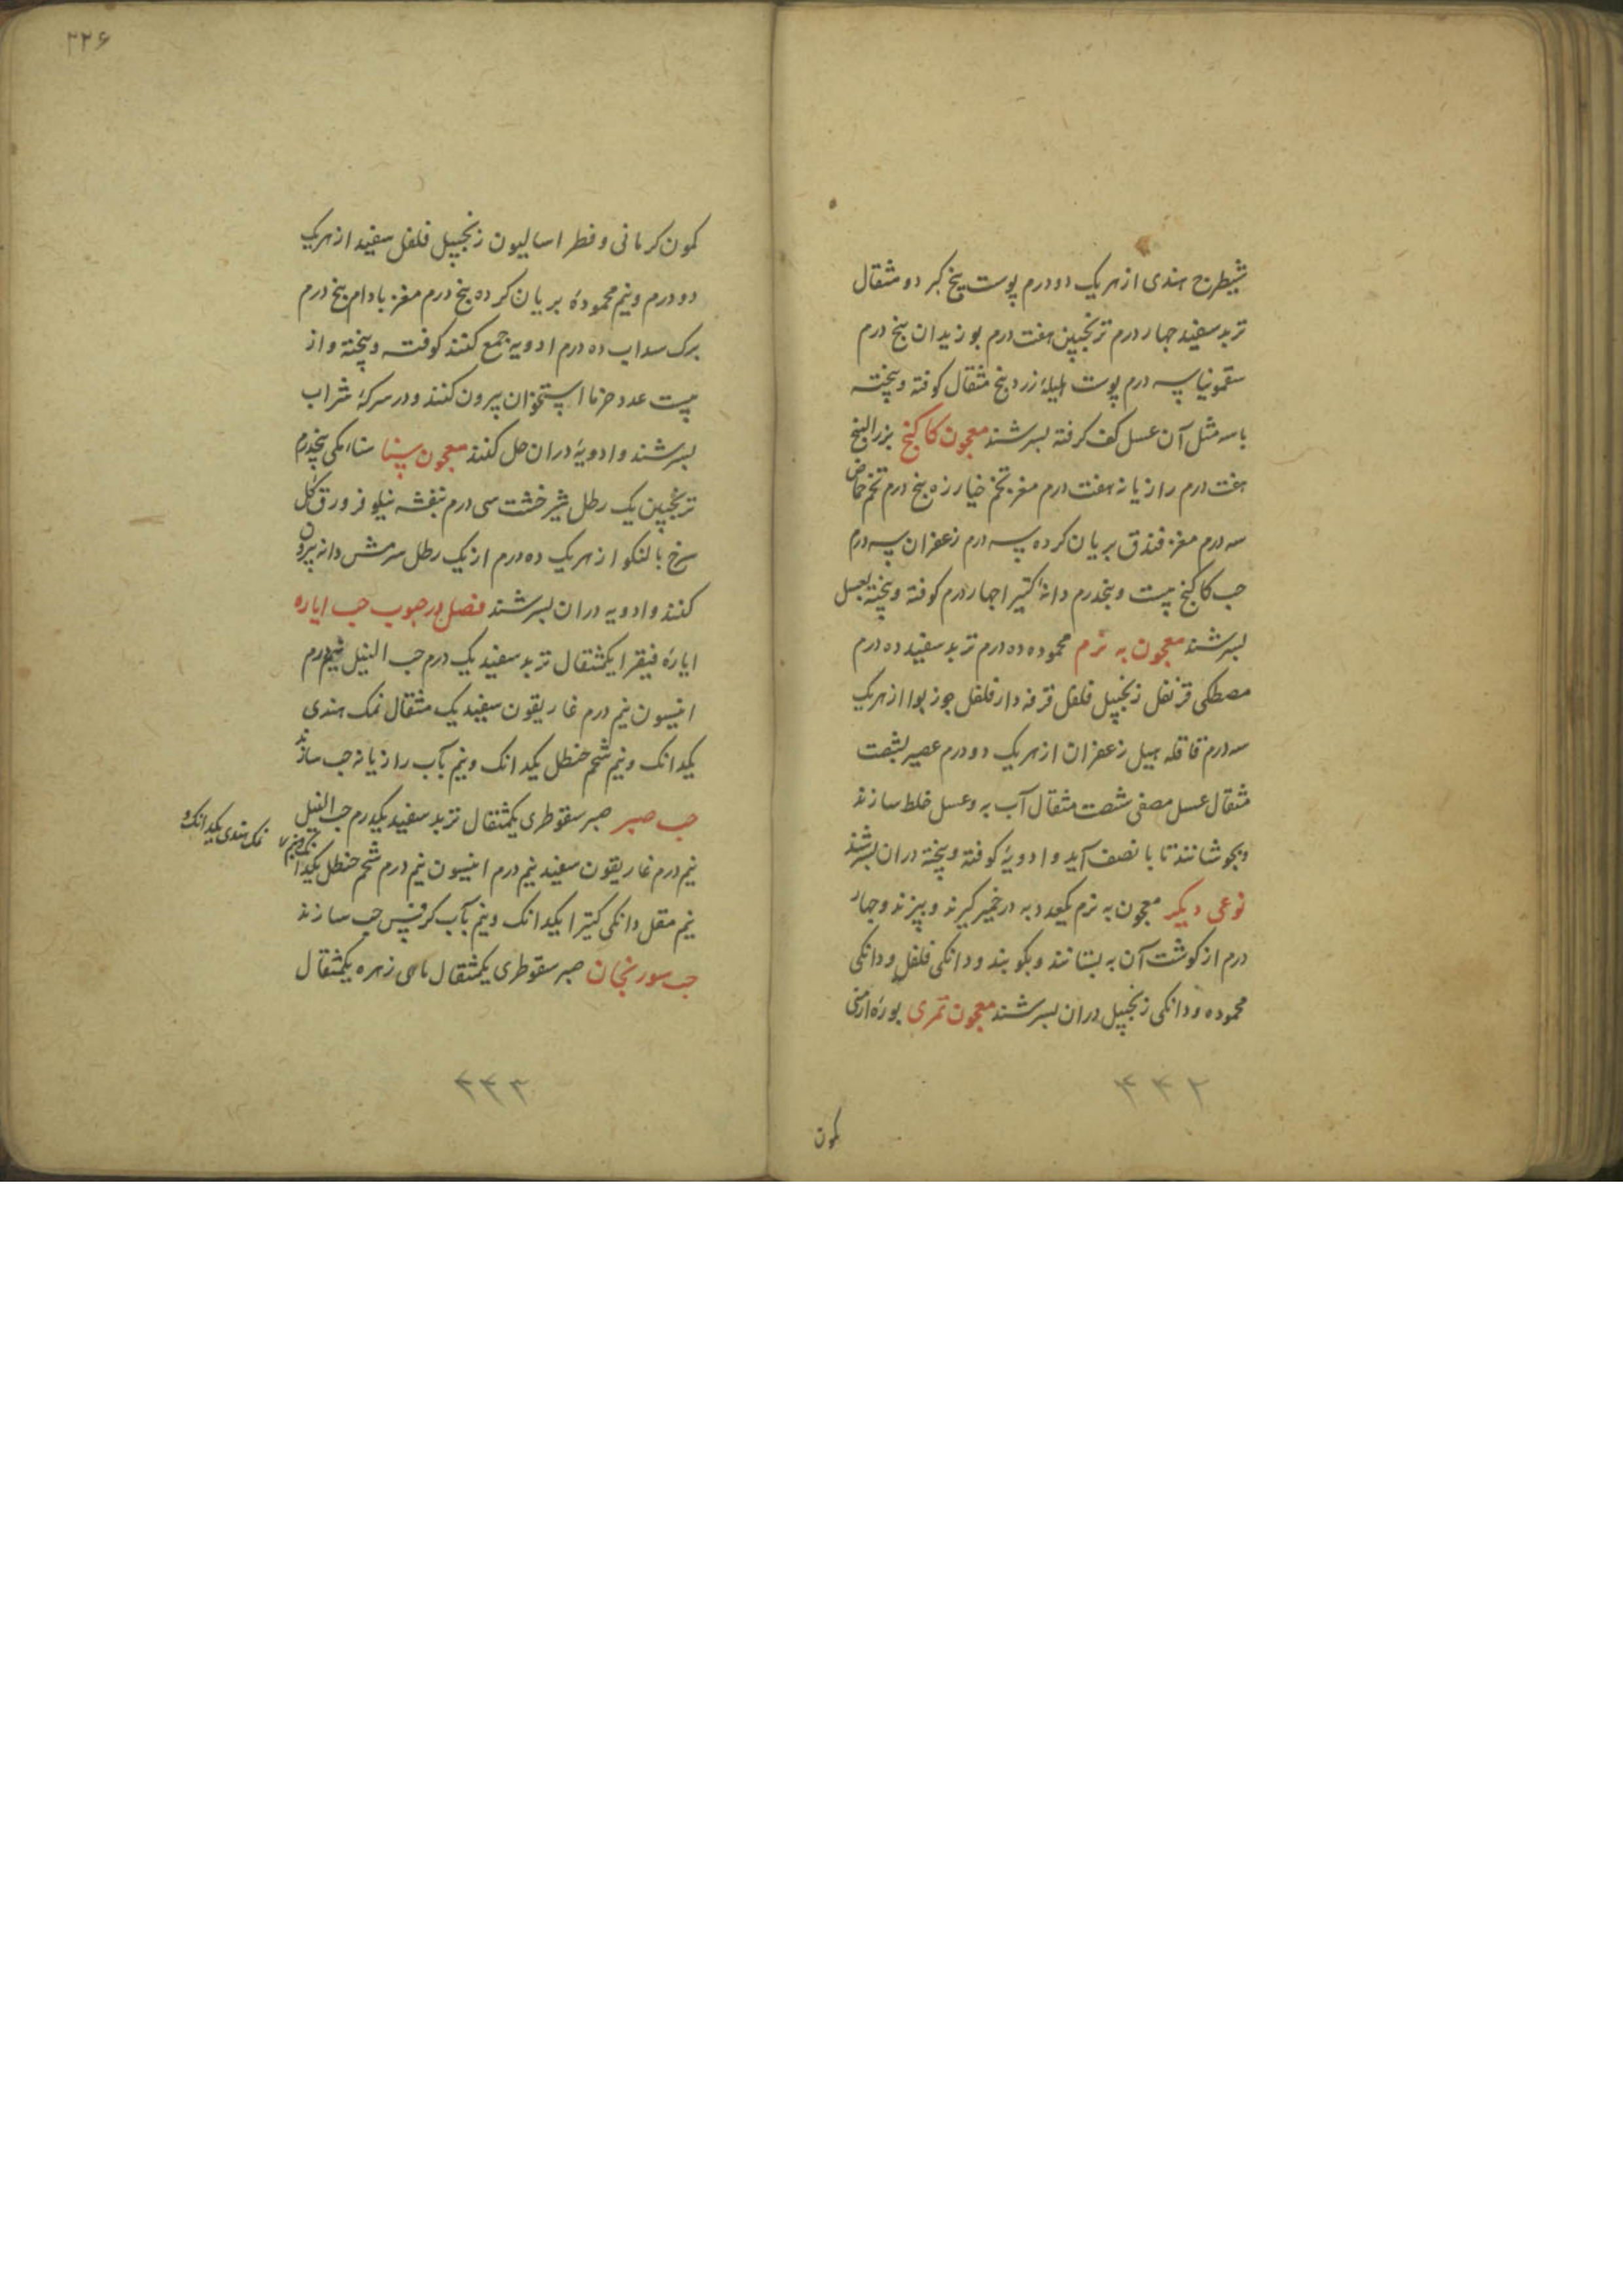 شیطرج هندی از هر یک دو درم پوست بیخ کبر دو مثقال
تربد سفید چهار درم ترنجبین هفت درم بوزیدان پنج درم
سقمونیا سه درم پوست هلیلهٔ زرد پنج مثقال کوفته و پخته
با سه مثل آن عسل کف کرفته بسرشند معجون کاکنج بزرالبنج
هفت درم رازیانه هفت درم مغز تخم خیارزه پنج درم تخم حماض
سه درم مغز فندق بریان کرده سه درم زعفران سه درم
حب کاکنج بیست و پنجدرم دانه کتیرا چهار درم کوفته و پخته بعسل
بسرشند معجون به نرم محموده ده درم تربد سفید ده درم
مصطکی قرنفل زنجبیل فلفل قرفه دارفلفل جوزبوا از هر یک
سه درم قاقله هیل زعفران از هر یک دو درم عصیر بشصت
مثقال عسل مصفی شصت مثقال آب به و عسل خلط سازند
و بجوشانند تا با نصف آید و ادویهٔ کوفته و پخته دران بسرشند
نوعی دیکر معجون به نرم یکعدد به در خمیر کیرند و بپزند و چهار
درم از کوشت آن به بستانند و بکوبند و دانکی فلفل و دانکی
محموده و دانکی زنجبیل دران بسرشند معجون تمری بورهٔ ارمنی
۳۳۲
کمون
۲۲۶
کمون کرمانی و فطراسالیون زنجبیل فلفل سفید از هر یک
دو درم و نیم محمودهٔ بریان کرده پنج درم مغز بادام پنج درم
برک سداب ده درم ادویه جمع کنند کوفته و پخته و از
بیست عدد خرما استخوان بیرون کنند و در سرکهٔ شراب
بسرشند و ادویهٔ دران حل کنند معجون سنا سناء مکی پنجدرم
ترنجبین یک رطل شیرخشت سی درم بنفشه نیلوفر ورق کل
سرخ بالنکو از هر یک ده درم از یک رطل سرمش دانه بیرون
کنند و ادویه دران بسرشند فصل در حبوب حب ایاره
ایارهٔ فیقرا یکمثقال تربد سفید یک درم حب النیل نیم درم
انیسون نیم درم غاریقون سفید یک مثقال نمک هندی
یکدانک و نیم شحم حنظل یکدانک و نیم بآب رازیانه حب سازند
حب صبر صبر سقوطری یکمثقال تربد سفید یکدرم حب النیل
نمک هندی یکدانک و نیم
نیم درم غاریقون سفید نیم درم انیسون نیم درم شحم حنظل یکدانک
نیم مقل دانکی کتیرا یکدانک و نیم بآب کرفس حب سازند
حب سورنجان صبر سقوطری یکمثقال ماهی زهره یکمثقال
۳۳۳